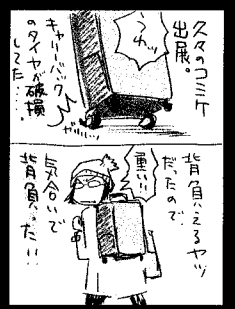 久々のコミケ
出展。
うわッ
キャリーバック
のタイヤが破損
してた…。
背負えるヤツ
だったので
重い!!
気合いで
背負った!!